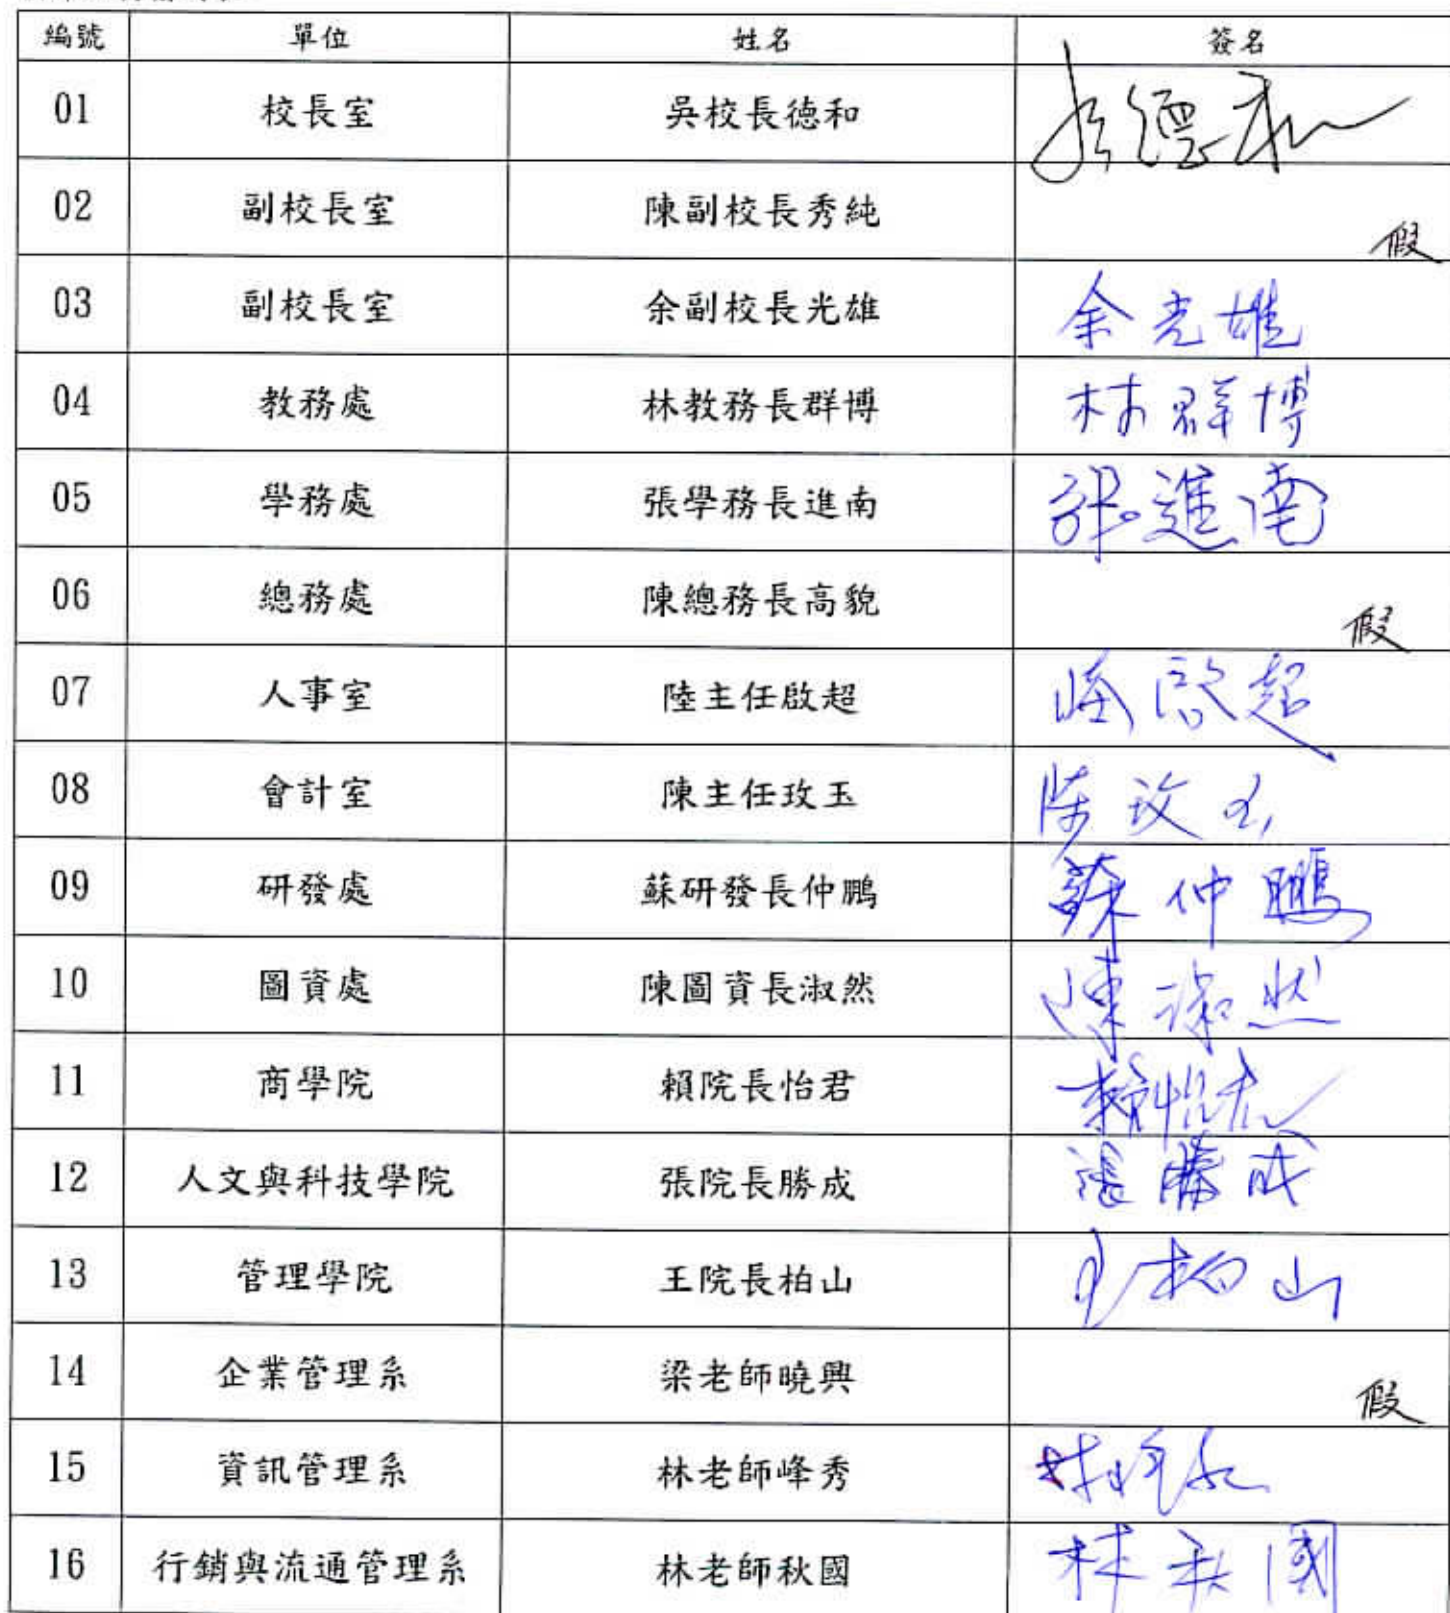 編號 單位 姓名 簽名
01 校長室 吳校長德和 吳德和
02 副校長室 陳副校長秀純 假
03 副校長室 余副校長光雄 余光雄
04 教務處 林教務長群博 林群博
05 學務處 張學務長進南 張進南
06 總務處 陳總務長高貌 假
07 人事室 陸主任啟超 陸啟超
08 會計室 陳主任玫玉 陳玫玉
09 研發處 蘇研發長仲鵬 蘇仲鵬
10 圖資處 陳圖資長淑然 陳淑然
11 商學院 賴院長怡君 賴怡君
12 人文與科技學院 張院長勝成 張勝成
13 管理學院 王院長柏山 王柏山
14 企業管理系 梁老師曉興 假
15 資訊管理系 林老師峰秀 林峰秀
16 行銷與流通管理系 林老師秋國 林秋國